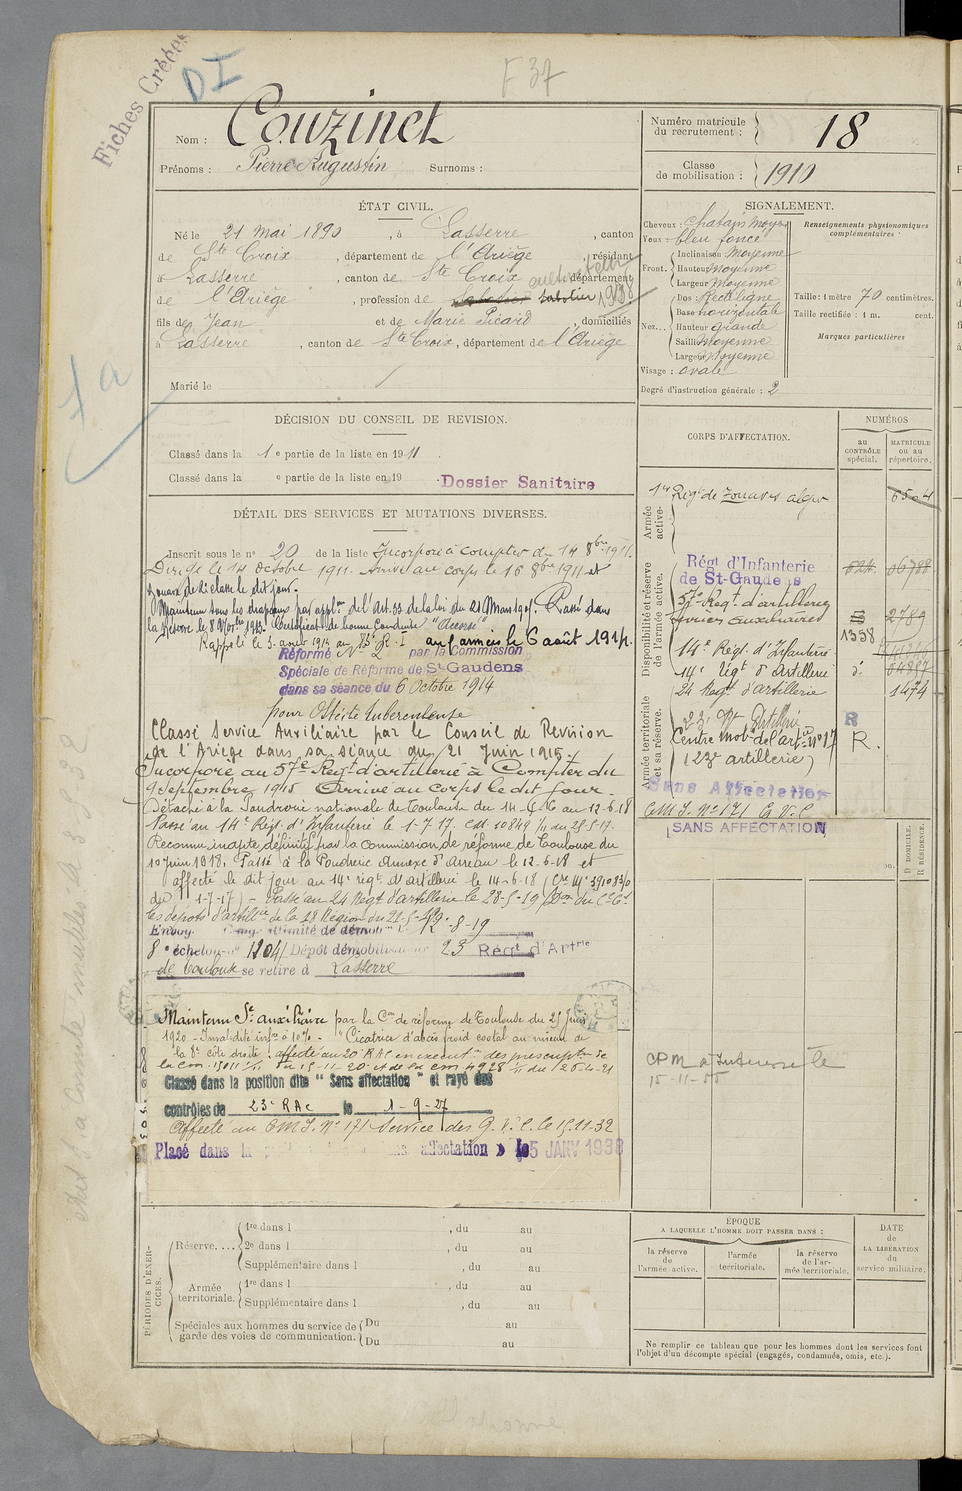 Fiches Créées
DI
F 37
Nom : Couzinet
Prénoms : Pierre Augustin Surnoms :
Numéro matricule du recrutement : 18
Classe de mobilisation : 1910
ÉTAT CIVIL.
Né le 21 Mai 1890, à Lasserre, canton
de Ste Croix, département de l'Ariège, résidant
à Lasserre, canton de Ste Croix, département
de l'Ariège, profession de Sabotier cultivateur 1938
fils de Jean et de Marie Picard, domiciliés
à Lasserre, canton de Ste Croix, département de l'Ariège
Marié le
SIGNALEMENT.
Cheveux : chatain moyen
Yeux : bleu foncé
Front. Inclinaison Moyenne
Hauteur Moyenne
Largeur Moyenne
Nez... Dos : Rectiligne
Base horizontale
Hauteur grande
Saillie Moyenne
Largeur Moyenne
Visage : ovale
Renseignements physionomiques complémentaires :
Taille : 1 mètre 70 centimètres.
Taille rectifiée : 1 m. cent.
Marques particulières
Degré d'instruction générale : 2
DÉCISION DU CONSEIL DE REVISION.
Classé dans la 1e partie de la liste en 1911.
Classé dans la e partie de la liste en 19 .
Dossier Sanitaire
DÉTAIL DES SERVICES ET MUTATIONS DIVERSES.
Inscrit sous le n° 20 de la liste Incorporé à compter du 14 8bre 1911.
Dirigé le 14 octobre 1911. Arrivé au corps le 16 8bre 1911 et
zouave de 2e classe le dit jour.
Maintenu sous les drapeaux par appl.on de l'art. 33 de la loi du 21 Mars 1905. Passé dans
la réserve le 8 Nov.bre 1913. Certificat de bonne conduite "accordé"
Rappelé le 3 août 1914 au R. I aux armées le 6 août 1914.
Réformé N° 2 par la Commission
Spéciale de Réforme de St Gaudens
dans sa séance du 6 Octobre 1914
pour Ostéite tuberculeuse
Classé Service Auxiliaire par le Conseil de Revision
de l'Ariège dans sa séance du 21 Juin 1915.
Incorporé au 57e Régt d'artillerie à Compter du
9 Septembre 1915 Arrivé au corps le dit jour.
Détaché à la Poudrerie nationale de Toulouse du 14-6-16 au 12-6-18
Passé au 14e Régt. d'Infanterie le 1-7-17. CM. 10849 1/11 du 28-5-17.
Reconnu inapte définitif par la Commission de réforme de Toulouse du
10 Juin 1918. Passé à la Poudrerie Annexe d'Arreau le 12-6-18 et
affecté le dit jour au 14e régt d'artillerie le 14-6-18
du 1-7-17) - Passé au 24 Régt d'artillerie le 28-5-19
les dépôts d'artillerie de la 18 Région du 22-5-19
Envoyé Congé illimité de démob. 12-8-19
8e échelon n° 1204 Dépôt démobilisateur 23 Régt d'Artrie
de Toulouse se retire à Lasserre
Maintenu Sce auxiliaire par la Con de réforme de Toulouse du 25 Juin
1920 - Invalidité infre à 10% - "Cicatrice d'abcès froid costal au niveau de
la 8e côte droite" affecté au 20 RAC en exécution des prescriptions de
la Cm. 15011 1/11 du 15-11-20 et de la Cm 4928 1/11 du 26-4-21
Classé dans la position dite "Sans affectation" et rayé des
contrôles de 23e RAC le 1-9-27
Affecté au CMI. N° 171 Service des G.V.C. le 15.11.32
Placé dans la sans affectation » le 5 JANV 1938
CORPS D'AFFECTATION.
NUMÉROS
au CONTRÔLE spécial.
MATRICULE ou au répertoire.
Armée active.
1er Régt de Zouaves 6504
Disponibilité et réserve de l'armée active.
Régt d'Infanterie
de St-Gaudens 06788
57e Régt d'artillerie
services auxiliaires 2789
1358
14e Régt. d'Infanterie
14e Régt d'Artillerie
24 Régt d'artillerie 1474
Armée territoriale et sa réserve.
23e Rt Artillie R
Centre Mobon de l'artie n° 17 R.
(23e artillerie)
Sans Affectation
CMI. N° 171 G.V.C
SANS AFFECTATION
D DOMICILE.
R RÉSIDENCE.
15-11-55
PÉRIODES D'EXERCICES.
Réserve.... 1re dans l , du au
2e dans l , du au
Supplémentaire dans l , du au
Armée territoriale. 1re dans l , du au
Supplémentaire dans l , du au
Spéciales aux hommes du service de garde des voies de communication. Du au
Du au
ÉPOQUE
A LAQUELLE L'HOMME DOIT PASSER DANS :
la réserve de l'armée active.
l'armée territoriale.
la réserve de l'armée territoriale.
DATE DE LA LIBÉRATION du service militaire.
Ne remplir ce tableau que pour les hommes dont les services font
l'objet d'un décompte spécial (engagés, condamnés, omis, etc.).